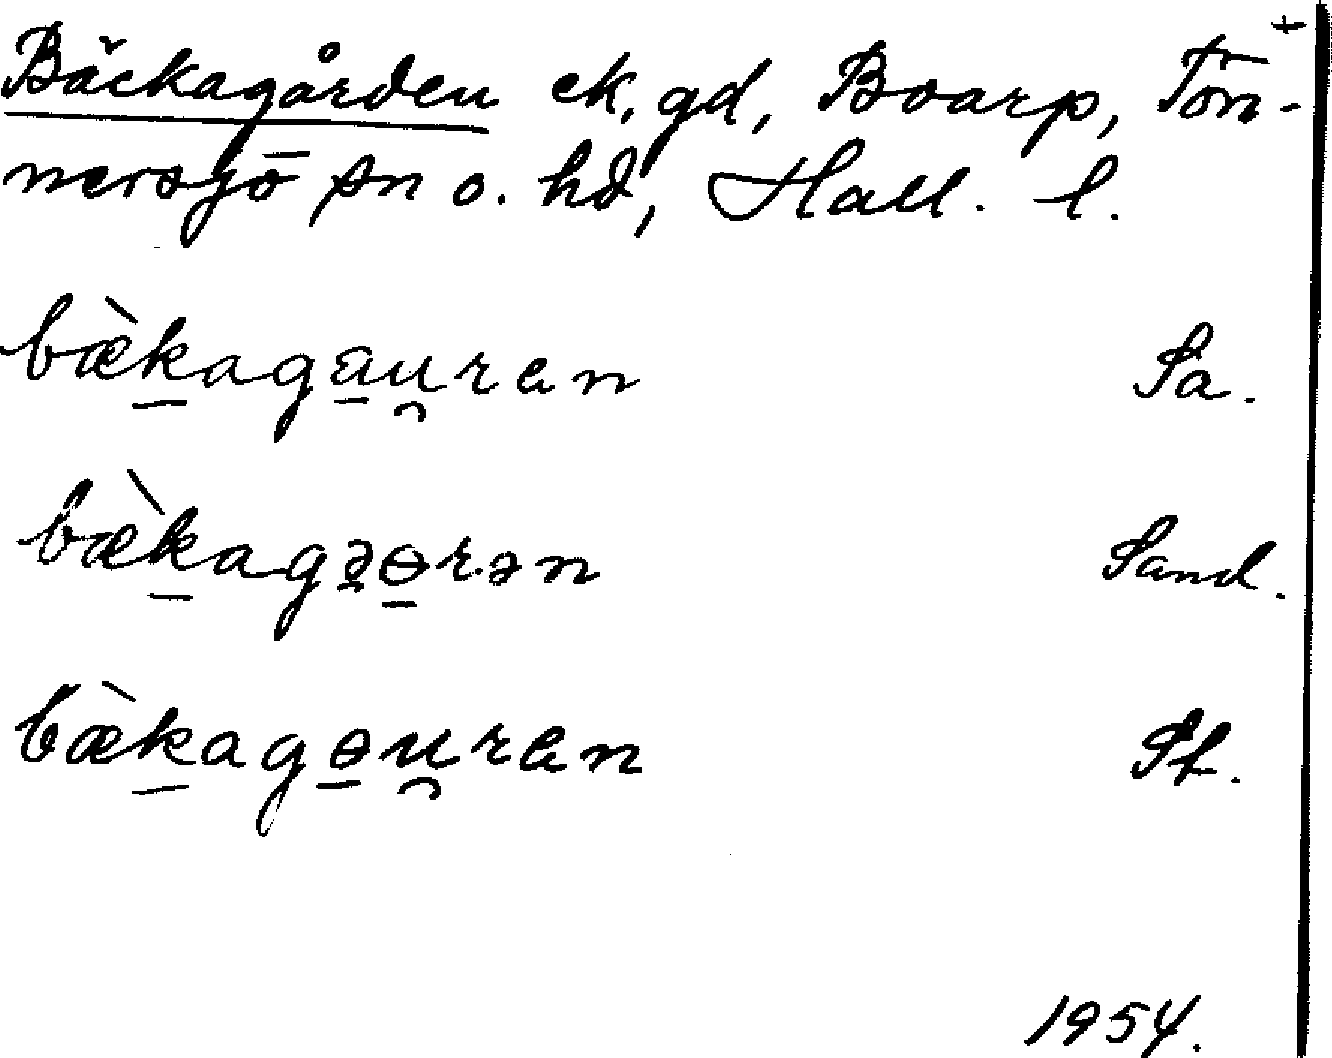 +
Bäckagården ek. gd, Boarp, Tön-
nersjö sn o. hd, Hall. l.
bæ̀k̲aga̲u̯ran Sa.
bæ̀k̲agə̲ɵ̲rən Sand.
bæ̀k̲agɵ̲u̯ran
1954.